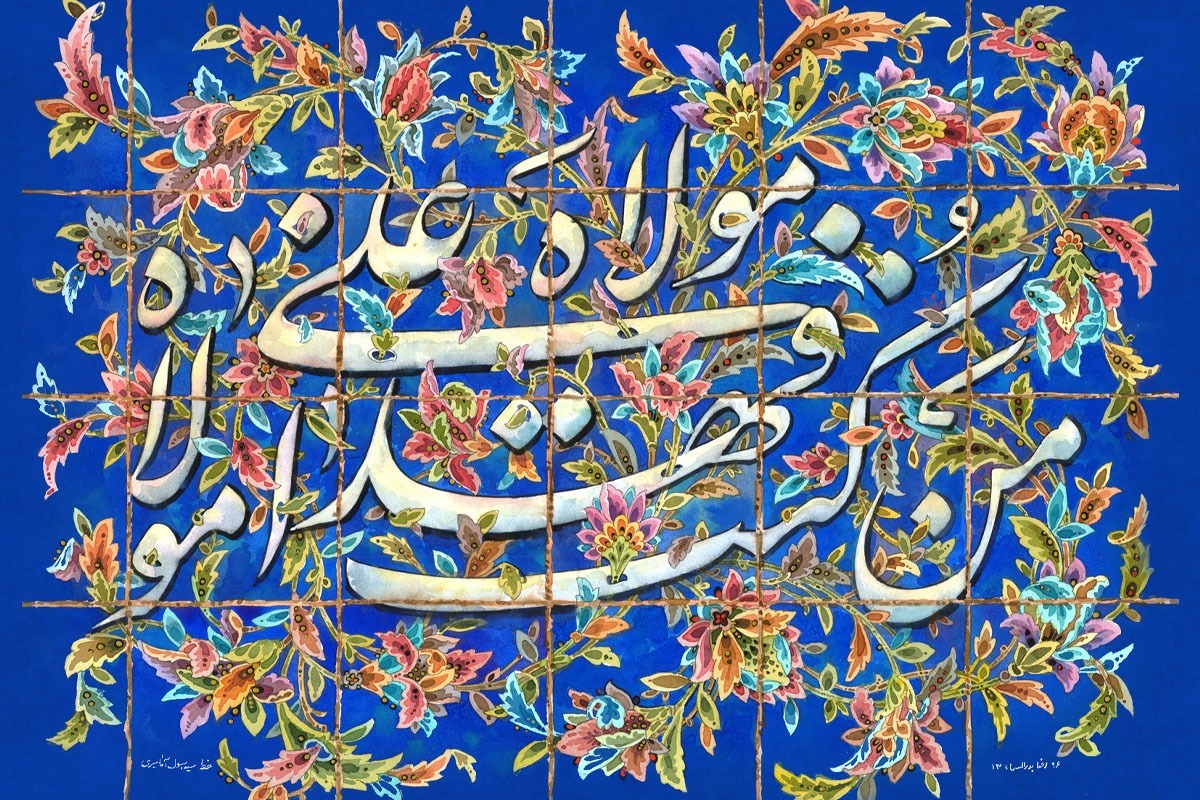 من کنت مولاه فهذا علی مولاه
۹۶ رضا بدرالسماء ۱۳
خط سید رسول آقامیری